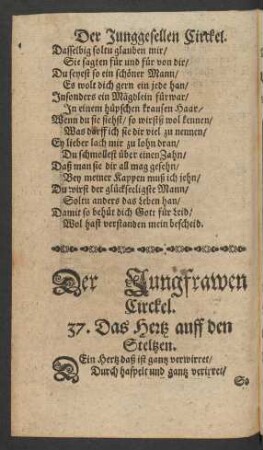 Der Junggesellen Circkel.
Dasselbig soltu glauben mir/
Sie sagten für und für von dir/
Du seyest so ein schöner Mann/
Es wolt dich gern ein jede han/
Insonders ein Mägdlein fürwar/
In einem hüpschen krausen Haar/
Wenn du sie siehst/ so wirstu wol kennen/
Was dörff ich sie dir viel zu nennen/
Ey lieber lach mir zu lohn dran/
Du schmollest über einen Zahn/
Daß man sie dir all mag gesehn/
Bey meiner Kappen muß ich jehn/
Du wirst der glückseeligste Mann/
Soltu anders das Leben han/
Damit so behüt dich Gott für Leid/
Wol hast verstanden mein bescheid.
Der Jungfrawen
Circkel.
37. Das Hertz auff den
Steltzen.
Ein Hertz daß ist gantz verwirret/
Durch haspelt und gantz verirret/
So